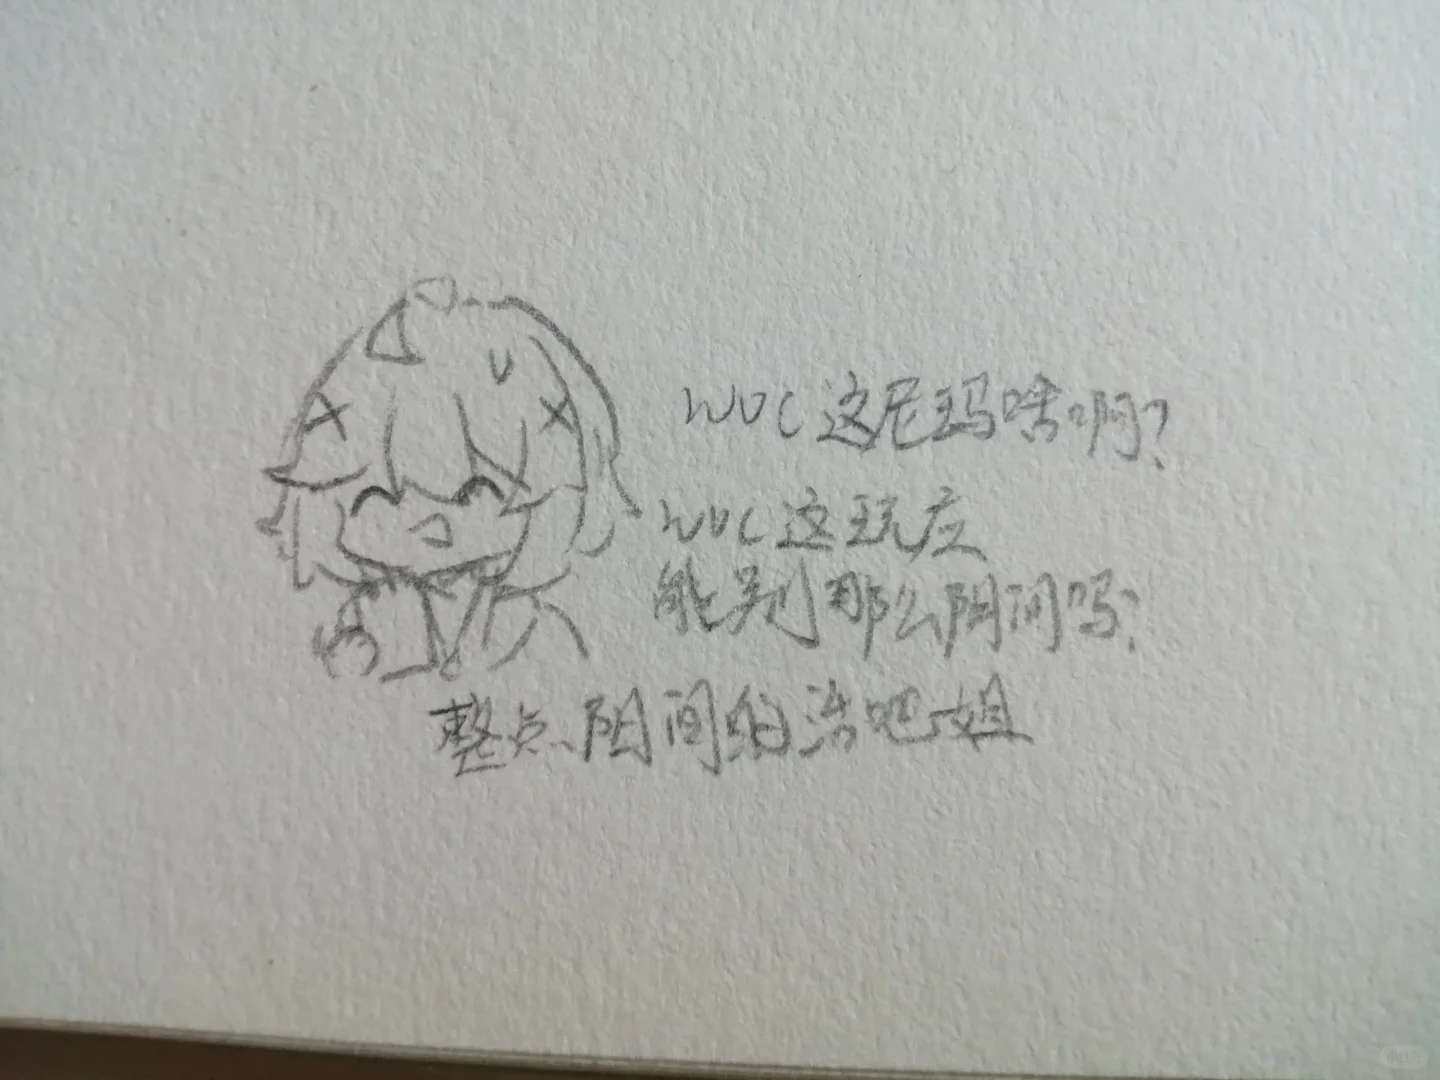 WOC这尼玛啥啊？
WOC这玩应
能别那么阴间吗？
整点阴间的活吧姐